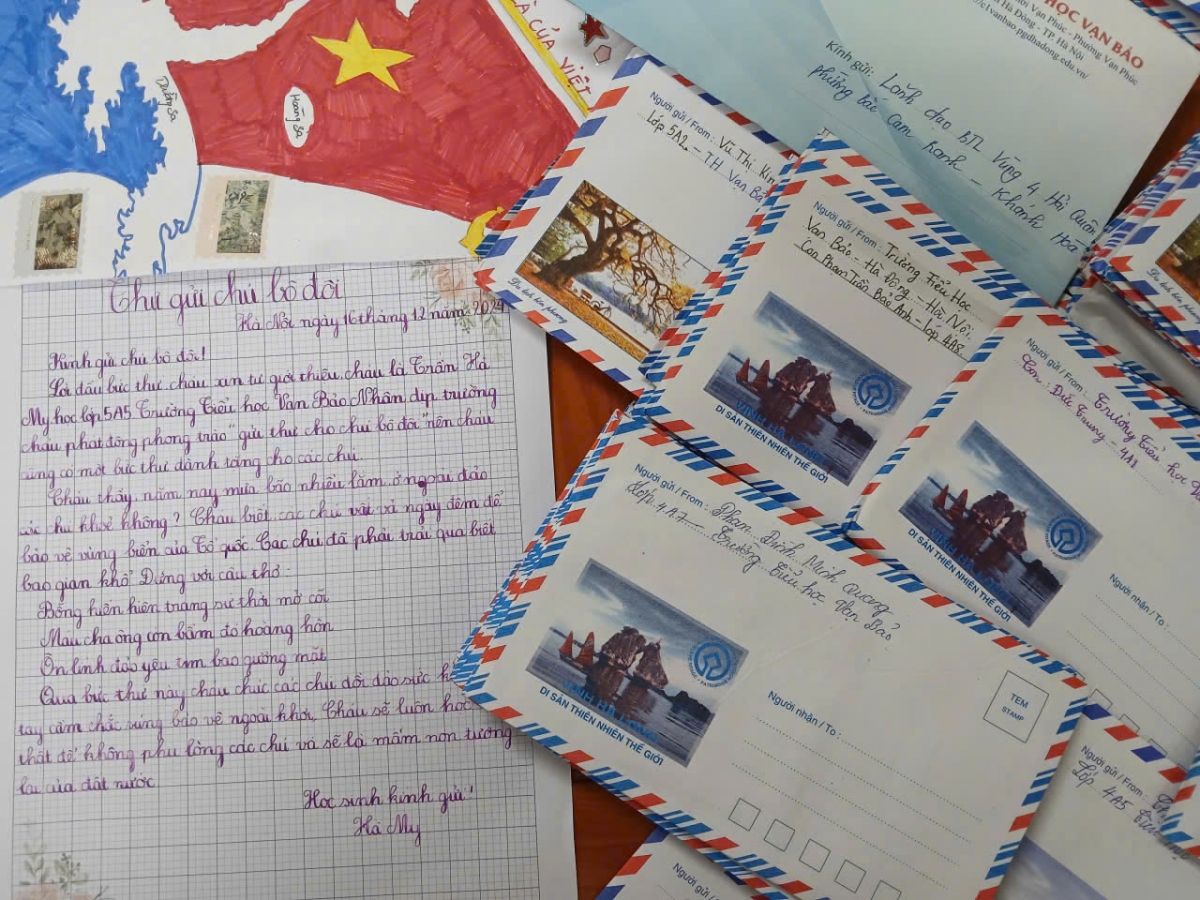 À CỦA VIỆT
Hoàng Sa
Thư gửi chú bộ đội
Hà Nội ngày 16 tháng 12 năm 2024
Kính gửi chú bộ đội!
Lời đầu bức thư cháu xin tự giới thiệu cháu là Trần Hà
My học lớp 5A5 Trường Tiểu học Vạn Bảo. Nhân dịp trường
cháu phát động phong trào "gửi thư cho chú bộ đội" nên cháu
cũng có một bức thư dành tặng cho các chú.
Cháu thấy năm nay mưa bão nhiều lắm, ở ngoài đảo
các chú khoẻ không? Cháu biết các chú vất vả ngày đêm để
bảo vệ vùng biển của Tổ quốc. Các chú đã phải trải qua biết
bao gian khổ. Đúng với câu thơ:
Bỗng luôn hiên trang sử thời mở cõi
Máu cha ông còn bầm đỏ hoàng hôn
Ơn lính đảo yêu tim bao gương mặt
Qua bức thư này cháu chúc các chú dồi dào sức
tay cầm chắc súng bảo vệ ngoài khơi. Cháu sẽ luôn học
thật để không phụ lòng các chú và sẽ là mầm non tương
lai của đất nước
Học sinh kính gửi!
Hà My
HỌC VẠN BẢO
Vạn Phúc - Phường Vạn Phúc
Hà Đông - TP. Hà Nội
//c1vanbao.pgdhadong.edu.vn/
Kính gửi: Lãnh đạo BTL Vùng 4 Hải Quân
phường bắc Cam Ranh - Khánh Hoà
Người gửi / From: Vũ Thị Kim
Lớp 5A2 - TH Vạn Bảo
Người gửi / From: Trường Tiểu Học
Vạn Bảo - Hà Đông - Hà Nội
Con Phan Trần Bảo Anh - lớp 4A8
VỊNH HẠ LONG
DI SẢN THIÊN NHIÊN THẾ GIỚI
Người gửi / From: Trường Tiểu học
Con: Đức Trung - 4A8
VỊNH HẠ LONG
DI SẢN THIÊN NHIÊN THẾ GIỚI
Người nhận / To:
Người gửi / From: Phan Đình Minh Quang
Lớp 4A7 - Trường Tiểu học Vạn Bảo
VỊNH HẠ LONG
DI SẢN THIÊN NHIÊN THẾ GIỚI
Người nhận / To:
TEM
STAMP
Người gửi / From:
Lớp 4A5
Người gửi / From: